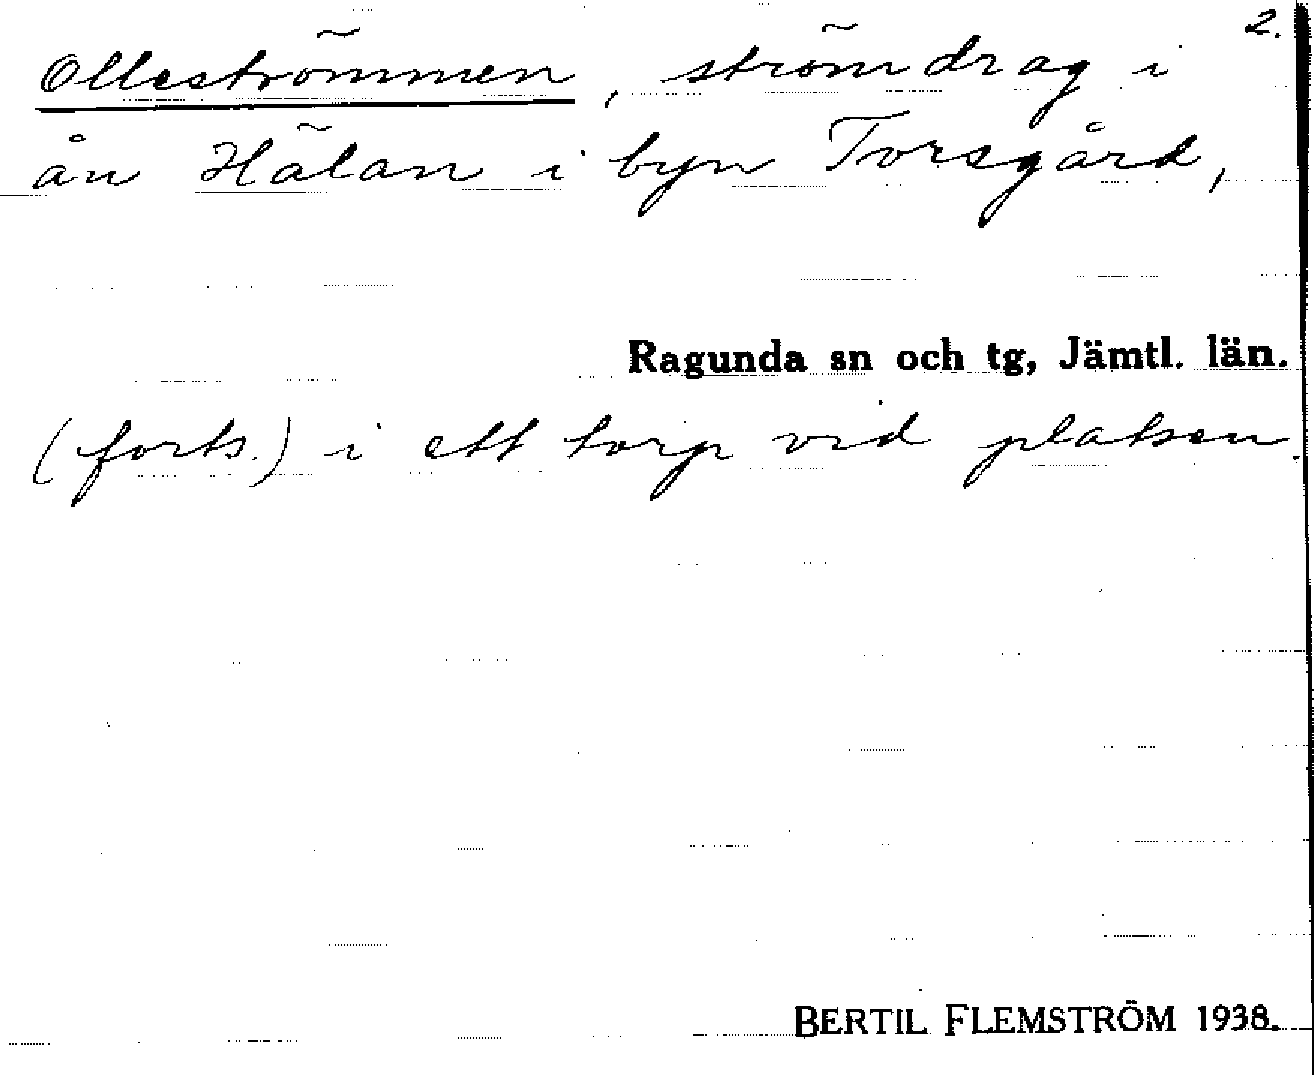 2.
Ollesträmmen, strömdrag i
ån Hälan i byn Torsgård,
Ragunda sn och tg, Jämtl. län.
(forts.) i ett torp vid platsen.
BERTIL FLEMSTRÖM 1938.